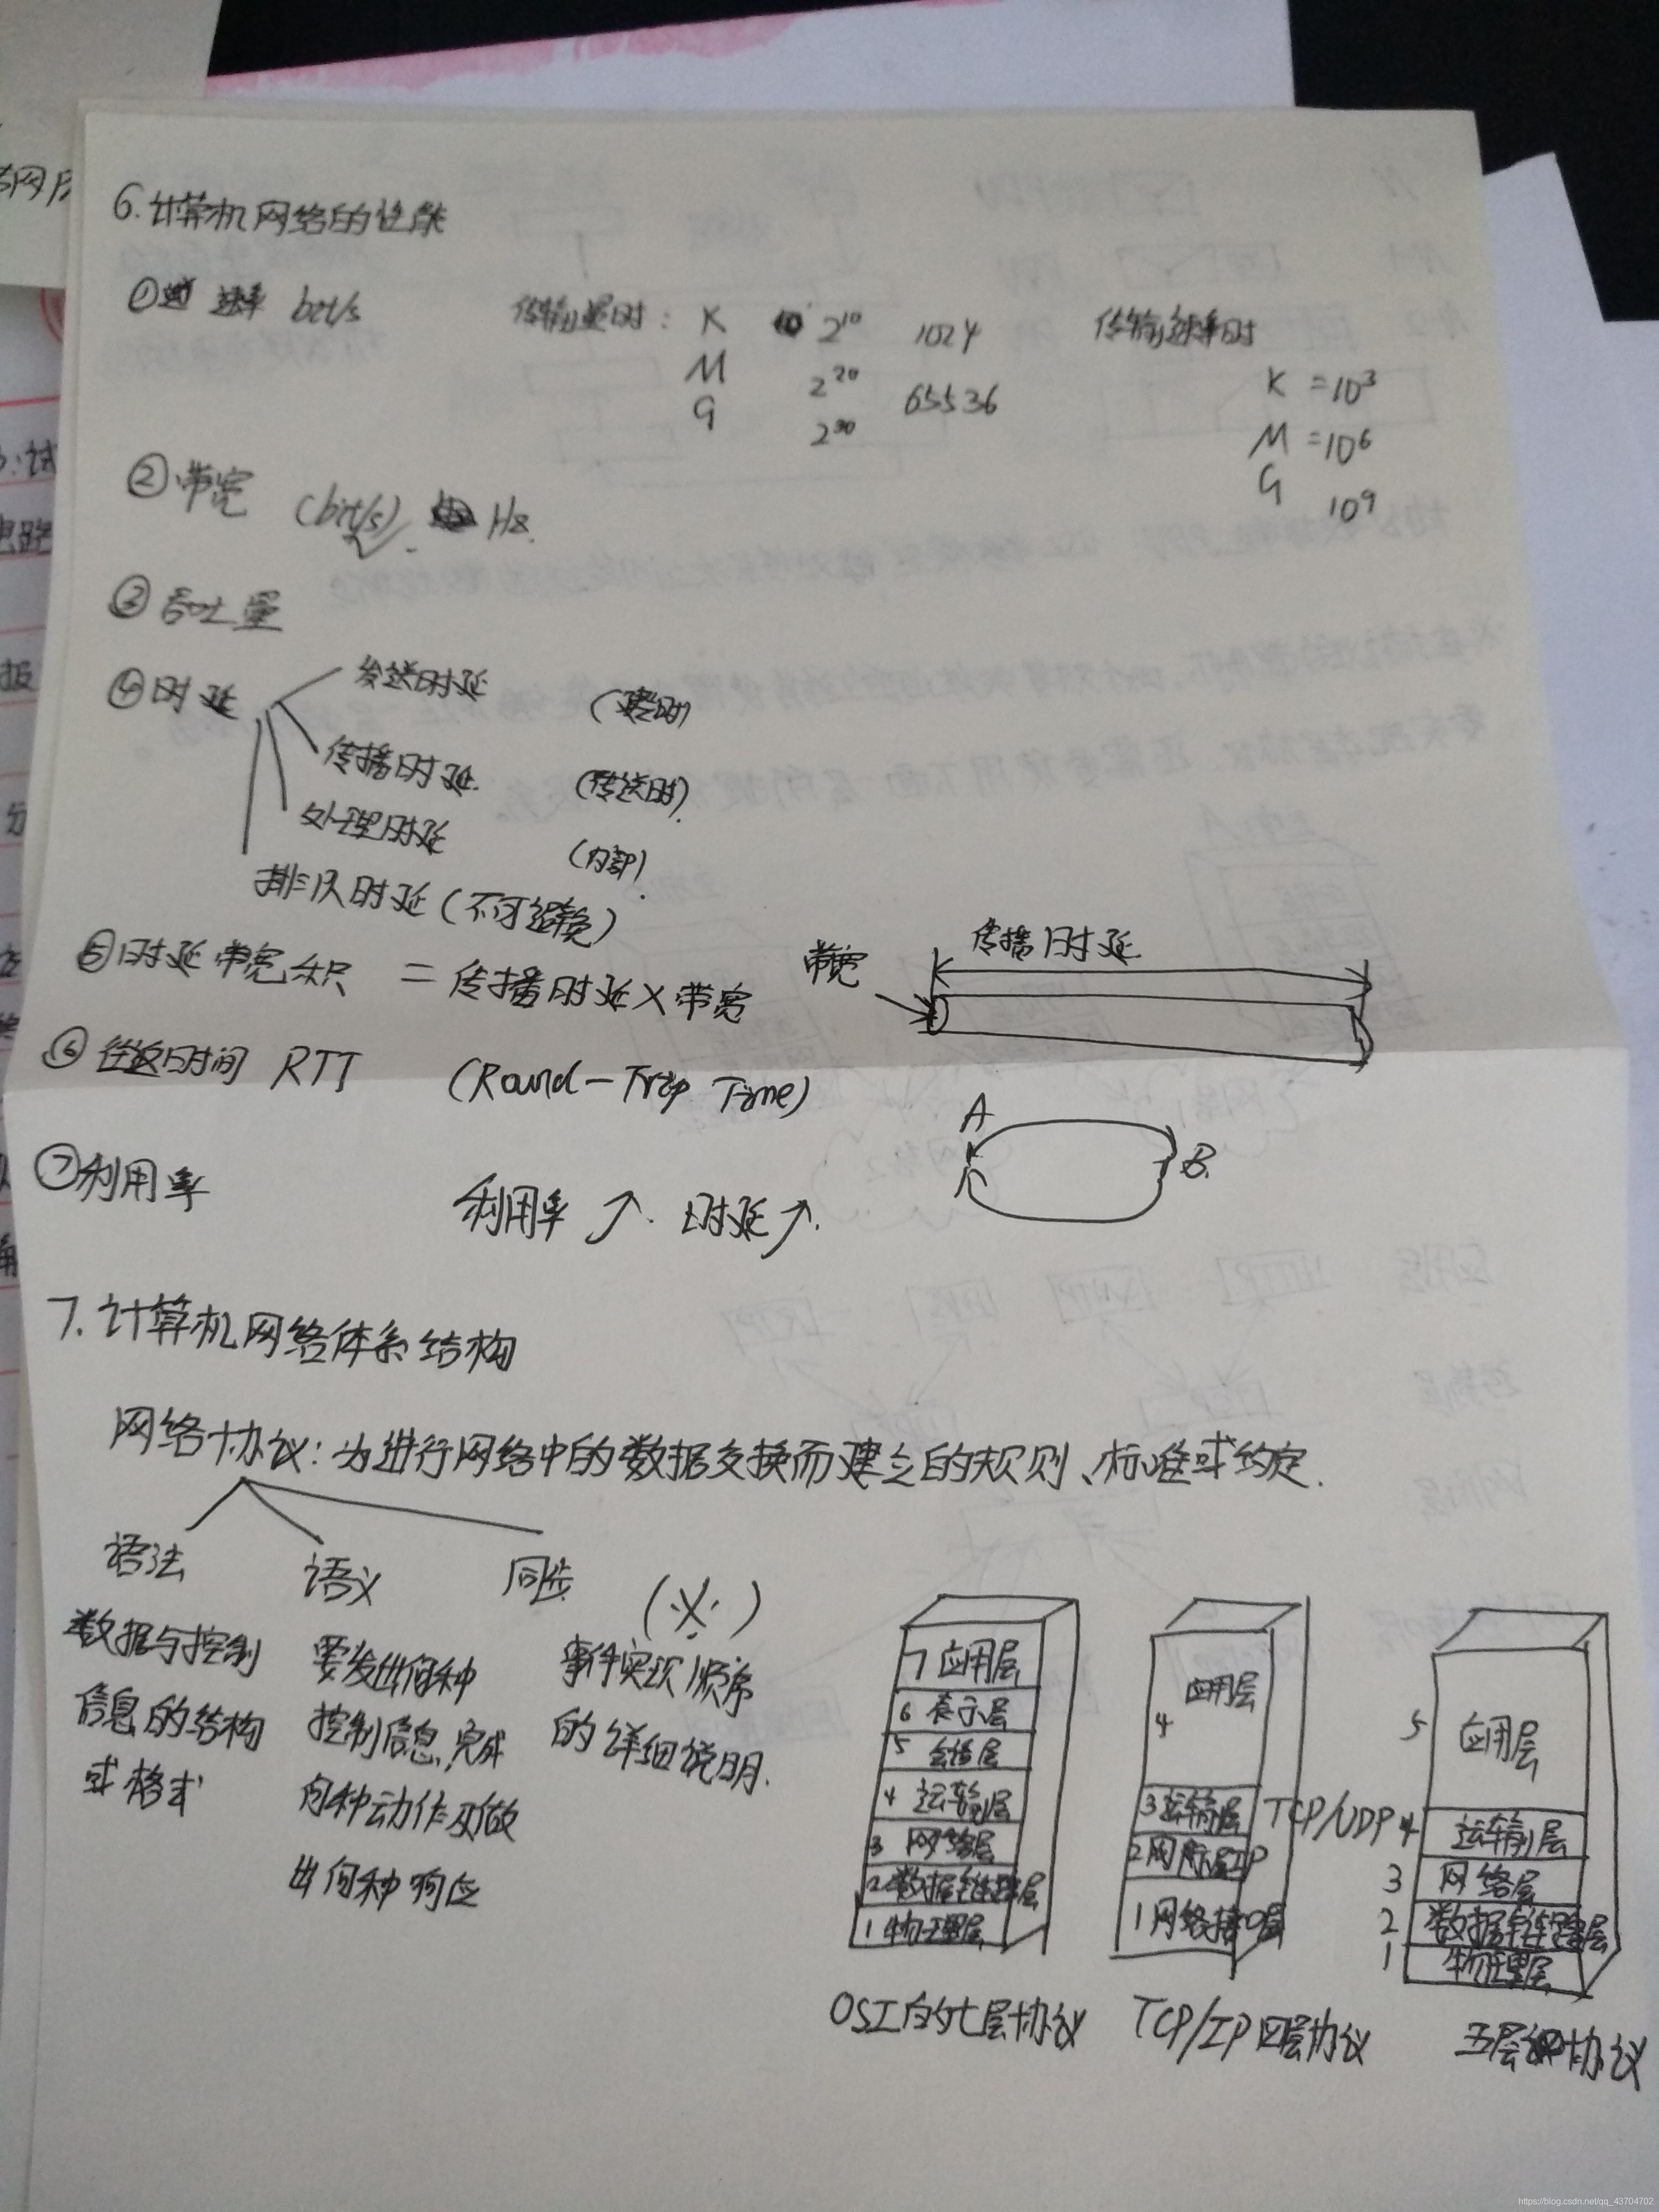 6.计算机网络的性能
①速率 bit/s 传输量时: K 2^10 1024 传输速率时
M 2^20 65536 K =10^3
G 2^30 M =10^6
G 10^9
②带宽 (bit/s) Hz.
③吞吐量
④时延 发送时延
传播时延 (传送时)
处理时延 (内部)
排队时延(不可避免)
⑤时延带宽积 = 传播时延×带宽
带宽 传播时延
⑥往返时间 RTT (Round-Trip Time)
A
B
⑦利用率 利用率↗. 时延↗.
7.计算机网络体系结构
网络协议:为进行网络中的数据交换而建立的规则、标准或约定.
语法 语义 同步 (※)
数据与控制 要发出何种 事件实现顺序
信息的结构 控制信息,完成 的详细说明.
或格式 何种动作及做
出何种响应
7 应用层
6 表示层
5 会话层
4 运输层
3 网络层
2 数据链路层
1 物理层
OSI的七层协议
应用层
4
3 运输层 TCP/UDP
2 网际层IP
1 网络接口层
TCP/IP四层协议
5 应用层
4 运输层
3 网络层
2 数据链路层
1 物理层
五层协议
https://blog.csdn.net/qq_43704702